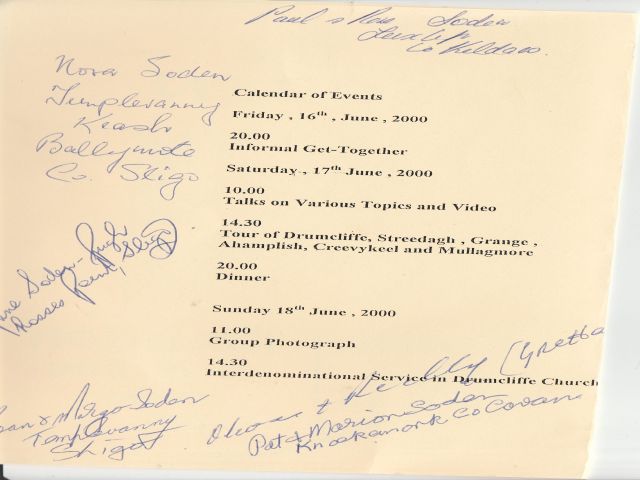 Paul & Rose Soden
Leixlip
Co Kildare.
Nora Soden
Templevanny
Keash
Ballymote
Co. Sligo
Calendar of Events
Friday , 16th , June , 2000
20.00
Informal Get-Together
Saturday , 17th June , 2000
10.00
Talks on Various Topics and Video
14.30
Tour of Drumcliffe, Streedagh , Grange ,
Ahamplish, Creevykeel and Mullagmore
20.00
Dinner
Soden-Pugh
Rosses Point, Sligo
Sunday 18th June , 2000
11.00
Group Photograph
14.30
Interdenominational Service in Drumcliffe Church
& Margo Soden
Templevanny
Sligo
& Kelly (Gretta
Pat & Marion Soden
Knockamork Co Cavan